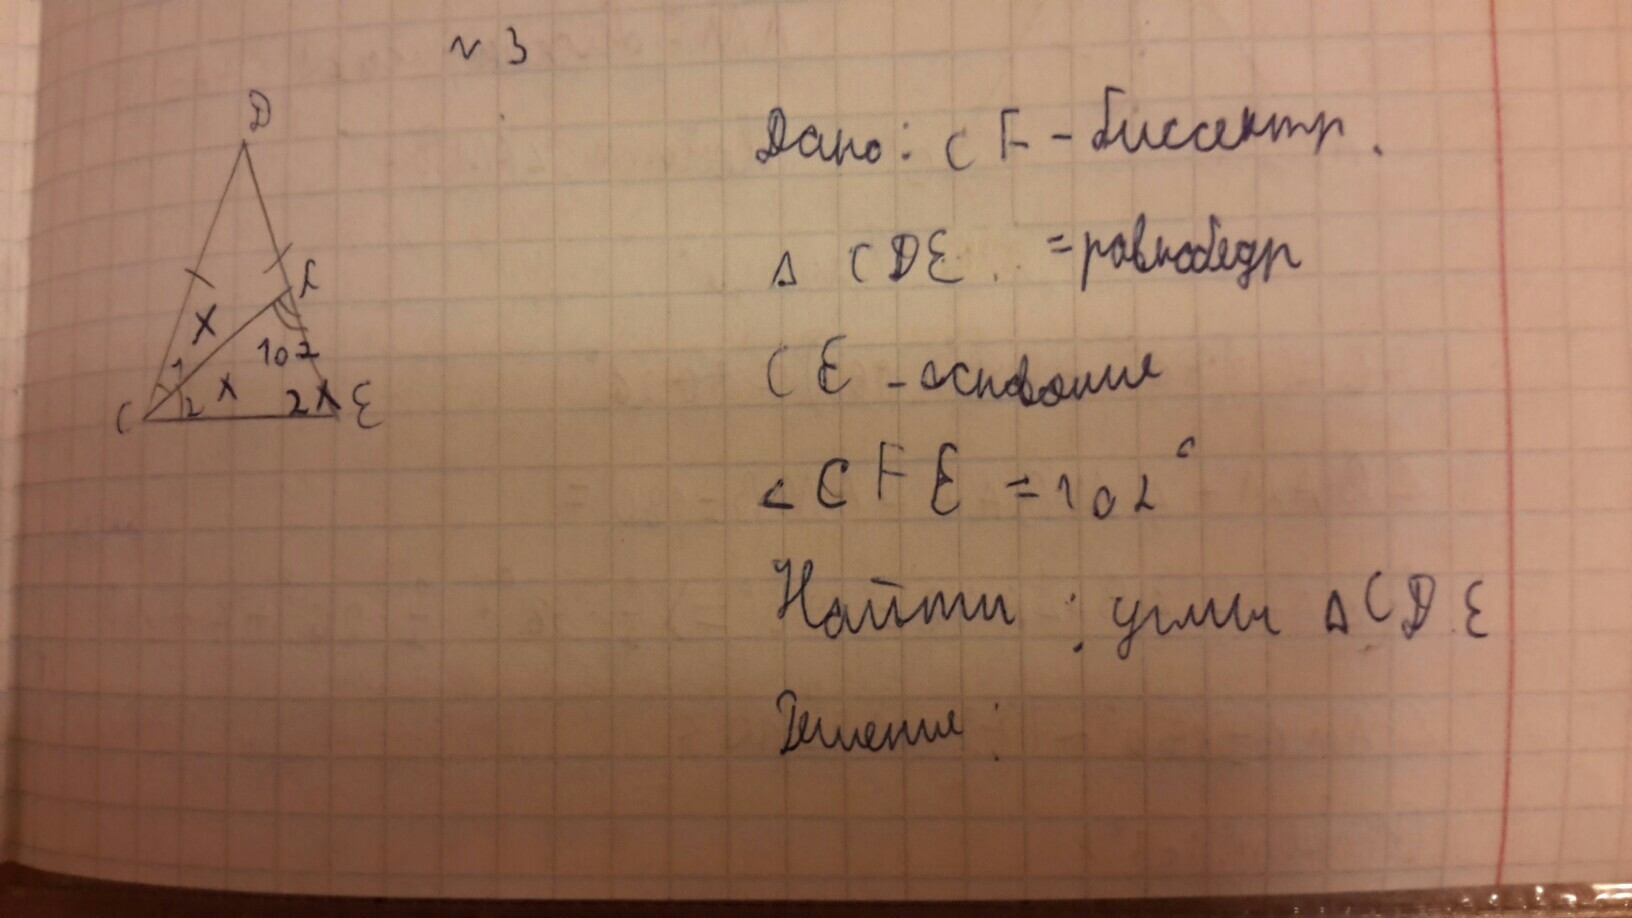 N 3
D
Дано: CF - биссектр.
△ CDE = равнобедр
F
x
1 102
C 2 x 2x E
CE - основание
∠CFE = 102°
Найти: углы △CDE
Решение: